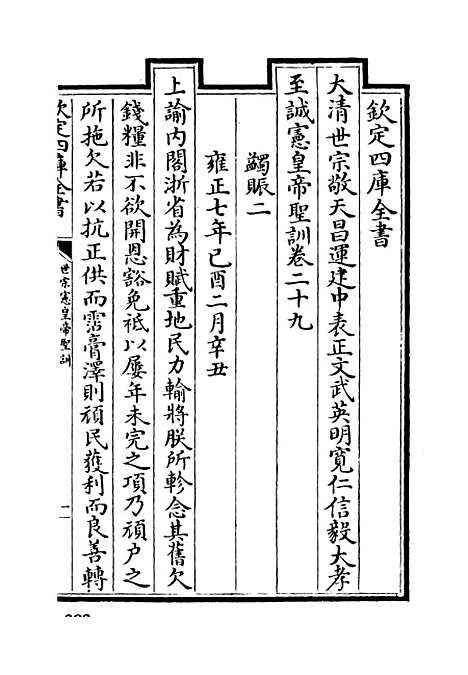 欽定四庫全書
大清世宗敬天昌運建中表正文武英明寬仁信毅大孝
至誠憲皇帝聖訓卷二十九
蠲賑二
雍正七年己酉二月辛丑
上諭内閣浙省為財賦重地民力輸將朕所軫念其舊欠
錢糧非不欲開恩豁免祗以屢年未完之項乃頑户之
所拖欠若以抗正供而霑膏澤則頑民獲利而良善轉
欽定四庫全書
世宗憲皇帝聖訓